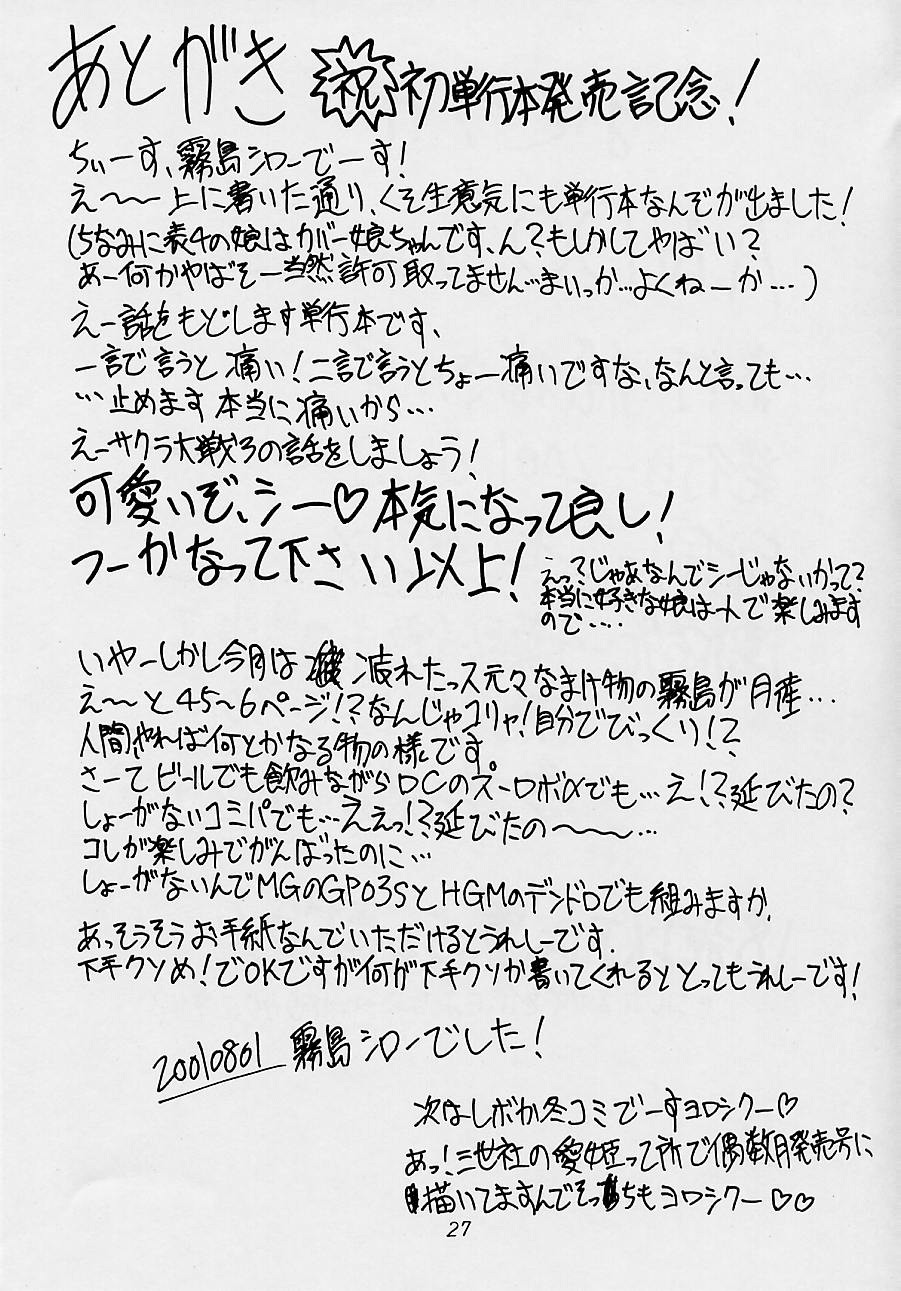 あとがき 祝 初単行本発売記念!
ちぃーす、霧島シローでーす!
え〜〜上に書いた通り、くそ生意気にも単行本なんぞが出ました!
(ちなみに表4の娘はカバー娘ちゃんです、ん?もしかしてやばい?
あー何かやばそー当然許可取ってません…まいっか…よくねーか…)
えー話をもどします単行本です、
一言で言うと痛い!二言で言うとちょー痛いですな、なんと言っても…
…止めます本当に痛いから…
えーサクラ大戦3の話をしましょう!
可愛いぞ、シー♡本気になって良し!
つーかなって下さい以上!
えっ?じゃあなんでシーじゃないかって?
本当に好きな娘は一人で楽しみます
ので‥‥
いやーしかし今月は 疲れたっス元々なまけ物の霧島が月産…
え〜と45〜6ページ!?なんじゃコリャ!自分でびっくり!?
人間やれば何とかなる物の様です
さーてビールでも飲みながらDCのスーロボαでも…え!?延びたの?
しょーがないコミパでも…ええっ!?延びたの〜〜〜…
コレが楽しみでがんばったのに…
しょーがないんでMGのGP03SとHGMのデンドロでも組みますか、
あっそうそうお手紙なんでいただけるとうれしーです.
下手クソめ!でOKですが何が下手クソか書いてくれるととってもうれしーです!
20010801 霧島シローでした!
次はしボか冬コミでーすヨロシクー♡
あっ!三世社の愛姫って所で偶数月発売号に
描いてますんでそっちもヨロシクー♡♡
27